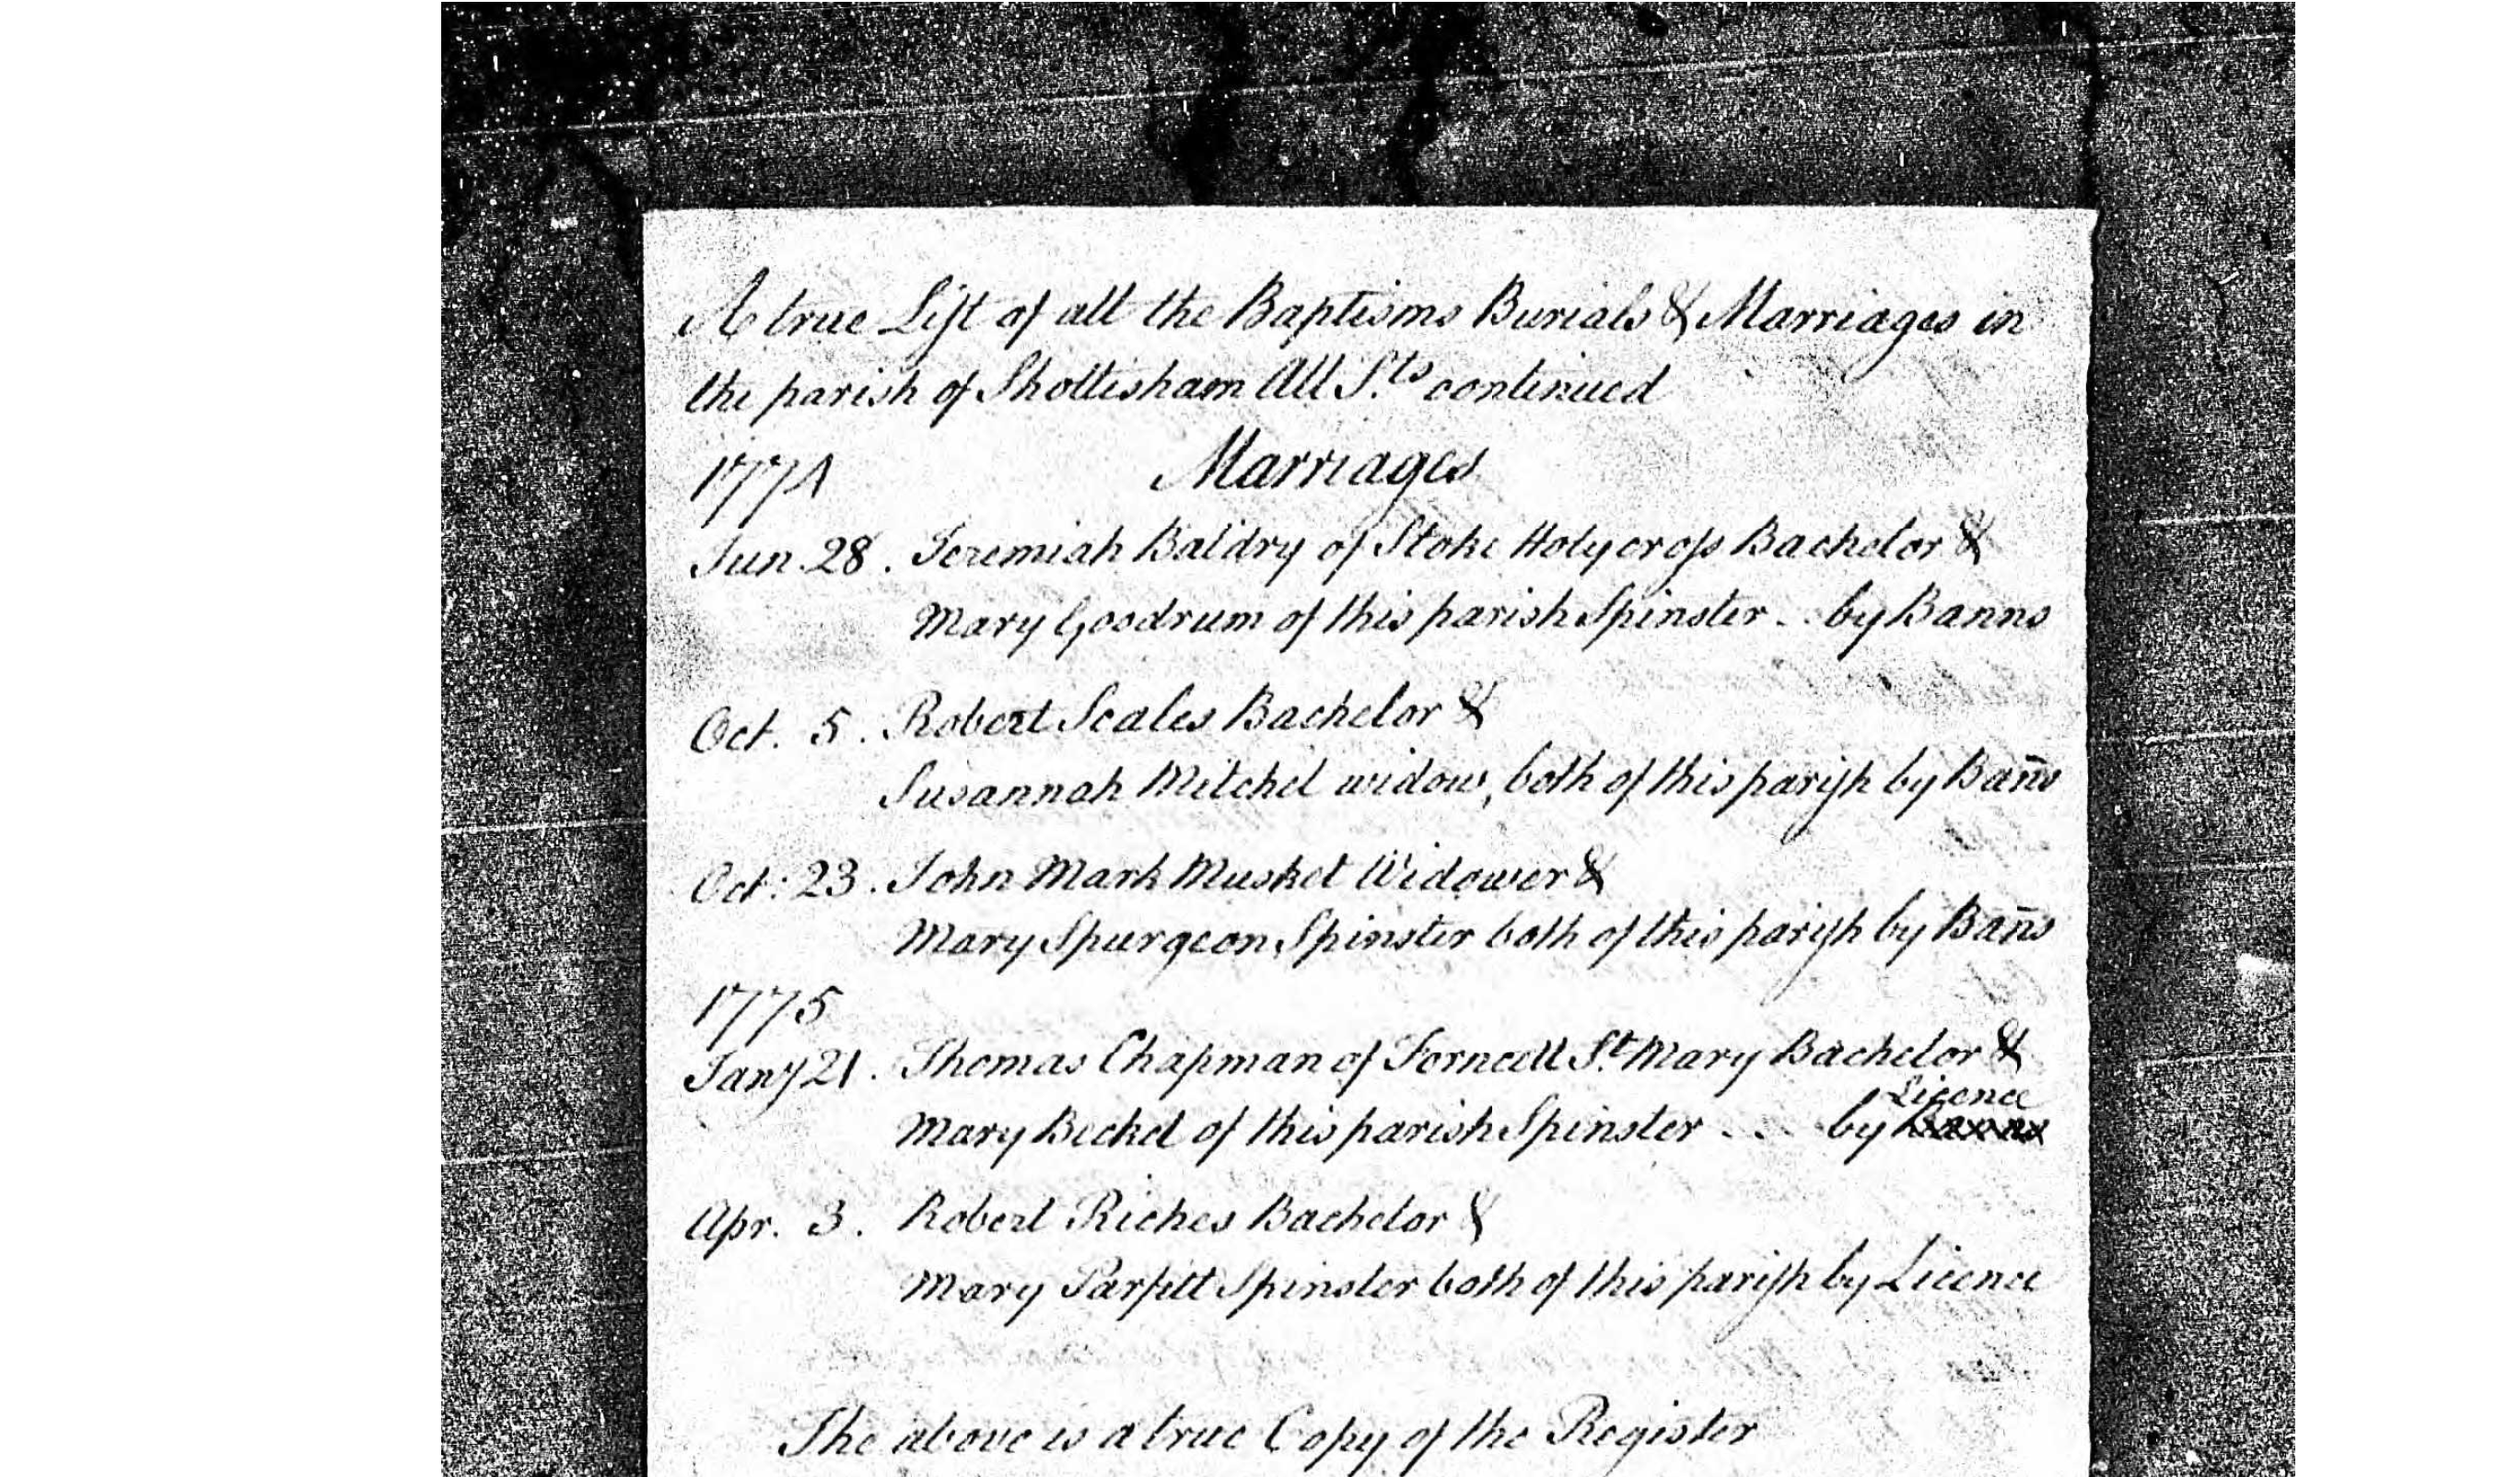 A true List of all the Baptisms Burials & Marriages in
the parish of Shottisham All S.ts continued
1774 Marriages
Jun. 28. Jeremiah Baldry of Stoke Holycross Bachelor &
Mary Goodrum of this parish Spinster .. by Banns
Oct. 5. Robert Scales Bachelor &
Susannah Mitchel widow, both of this parish by Bañs
Oct: 23. John Mark Musket Widower &
Mary Spurgeon Spinster both of this parish by Bañs
1775
Jany 21. Thomas Chapman of Forncett S.t Mary Bachelor &
Licence
Mary Beckel of this parish Spinster ... by Banns
Apr. 3. Robert Riches Bachelor &
Mary Parfitt Spinster both of this parish by Licence
The above is a true Copy of the Register